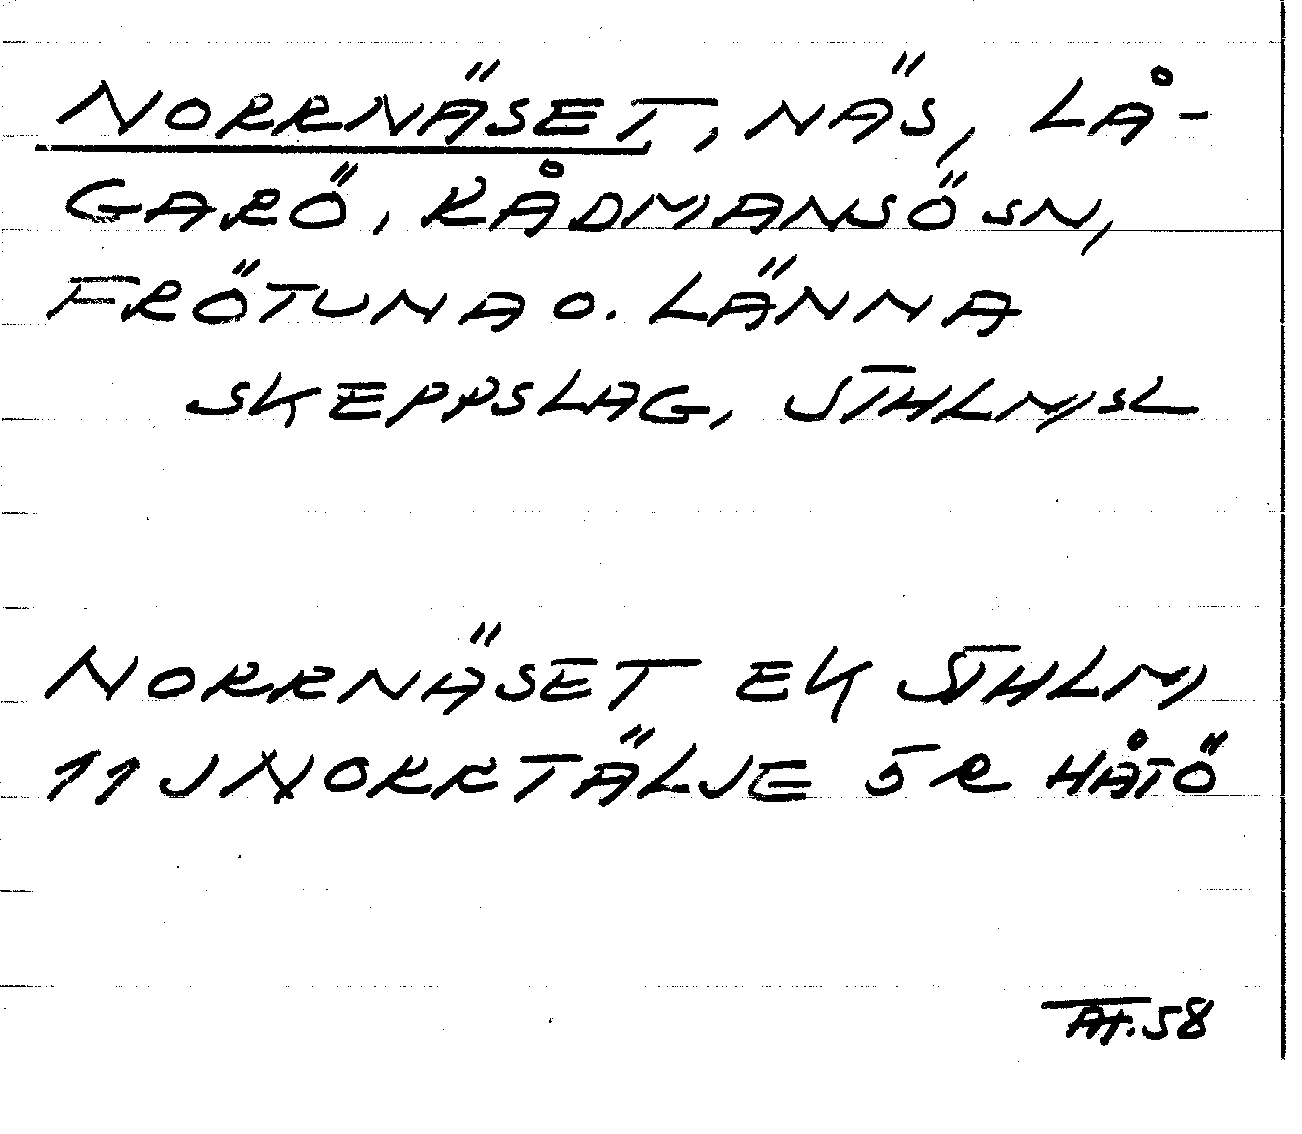 NORRNÄSET, NÄS, LÅ-
GARÖ, RÅDMANSÖ SN,
FRÖTUNA O. LÄNNA
SKEPPSLAG, STHLMSL
NORRNÄSET EK STHLM
11J NORRTÄLJE 5R HÅTÖ